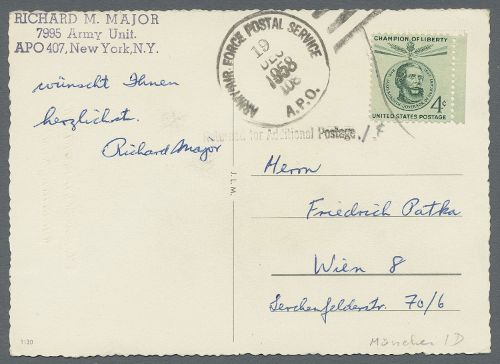 RICHARD M. MAJOR
7995 Army Unit.
APO 407, New York, N.Y.
wünscht Ihnen
herzlichst.
Richard Major
ARMY-AIR FORCE POSTAL SERVICE
A.P.O.
19
DEC
1958
CHAMPION OF LIBERTY
4¢
UNITED STATES POSTAGE
for Additional Postage
1¢
J.L.M.
Herrn
Friedrich Patka
Wien 8
Lerchenfelderstr. 70/6
München 1D
1130